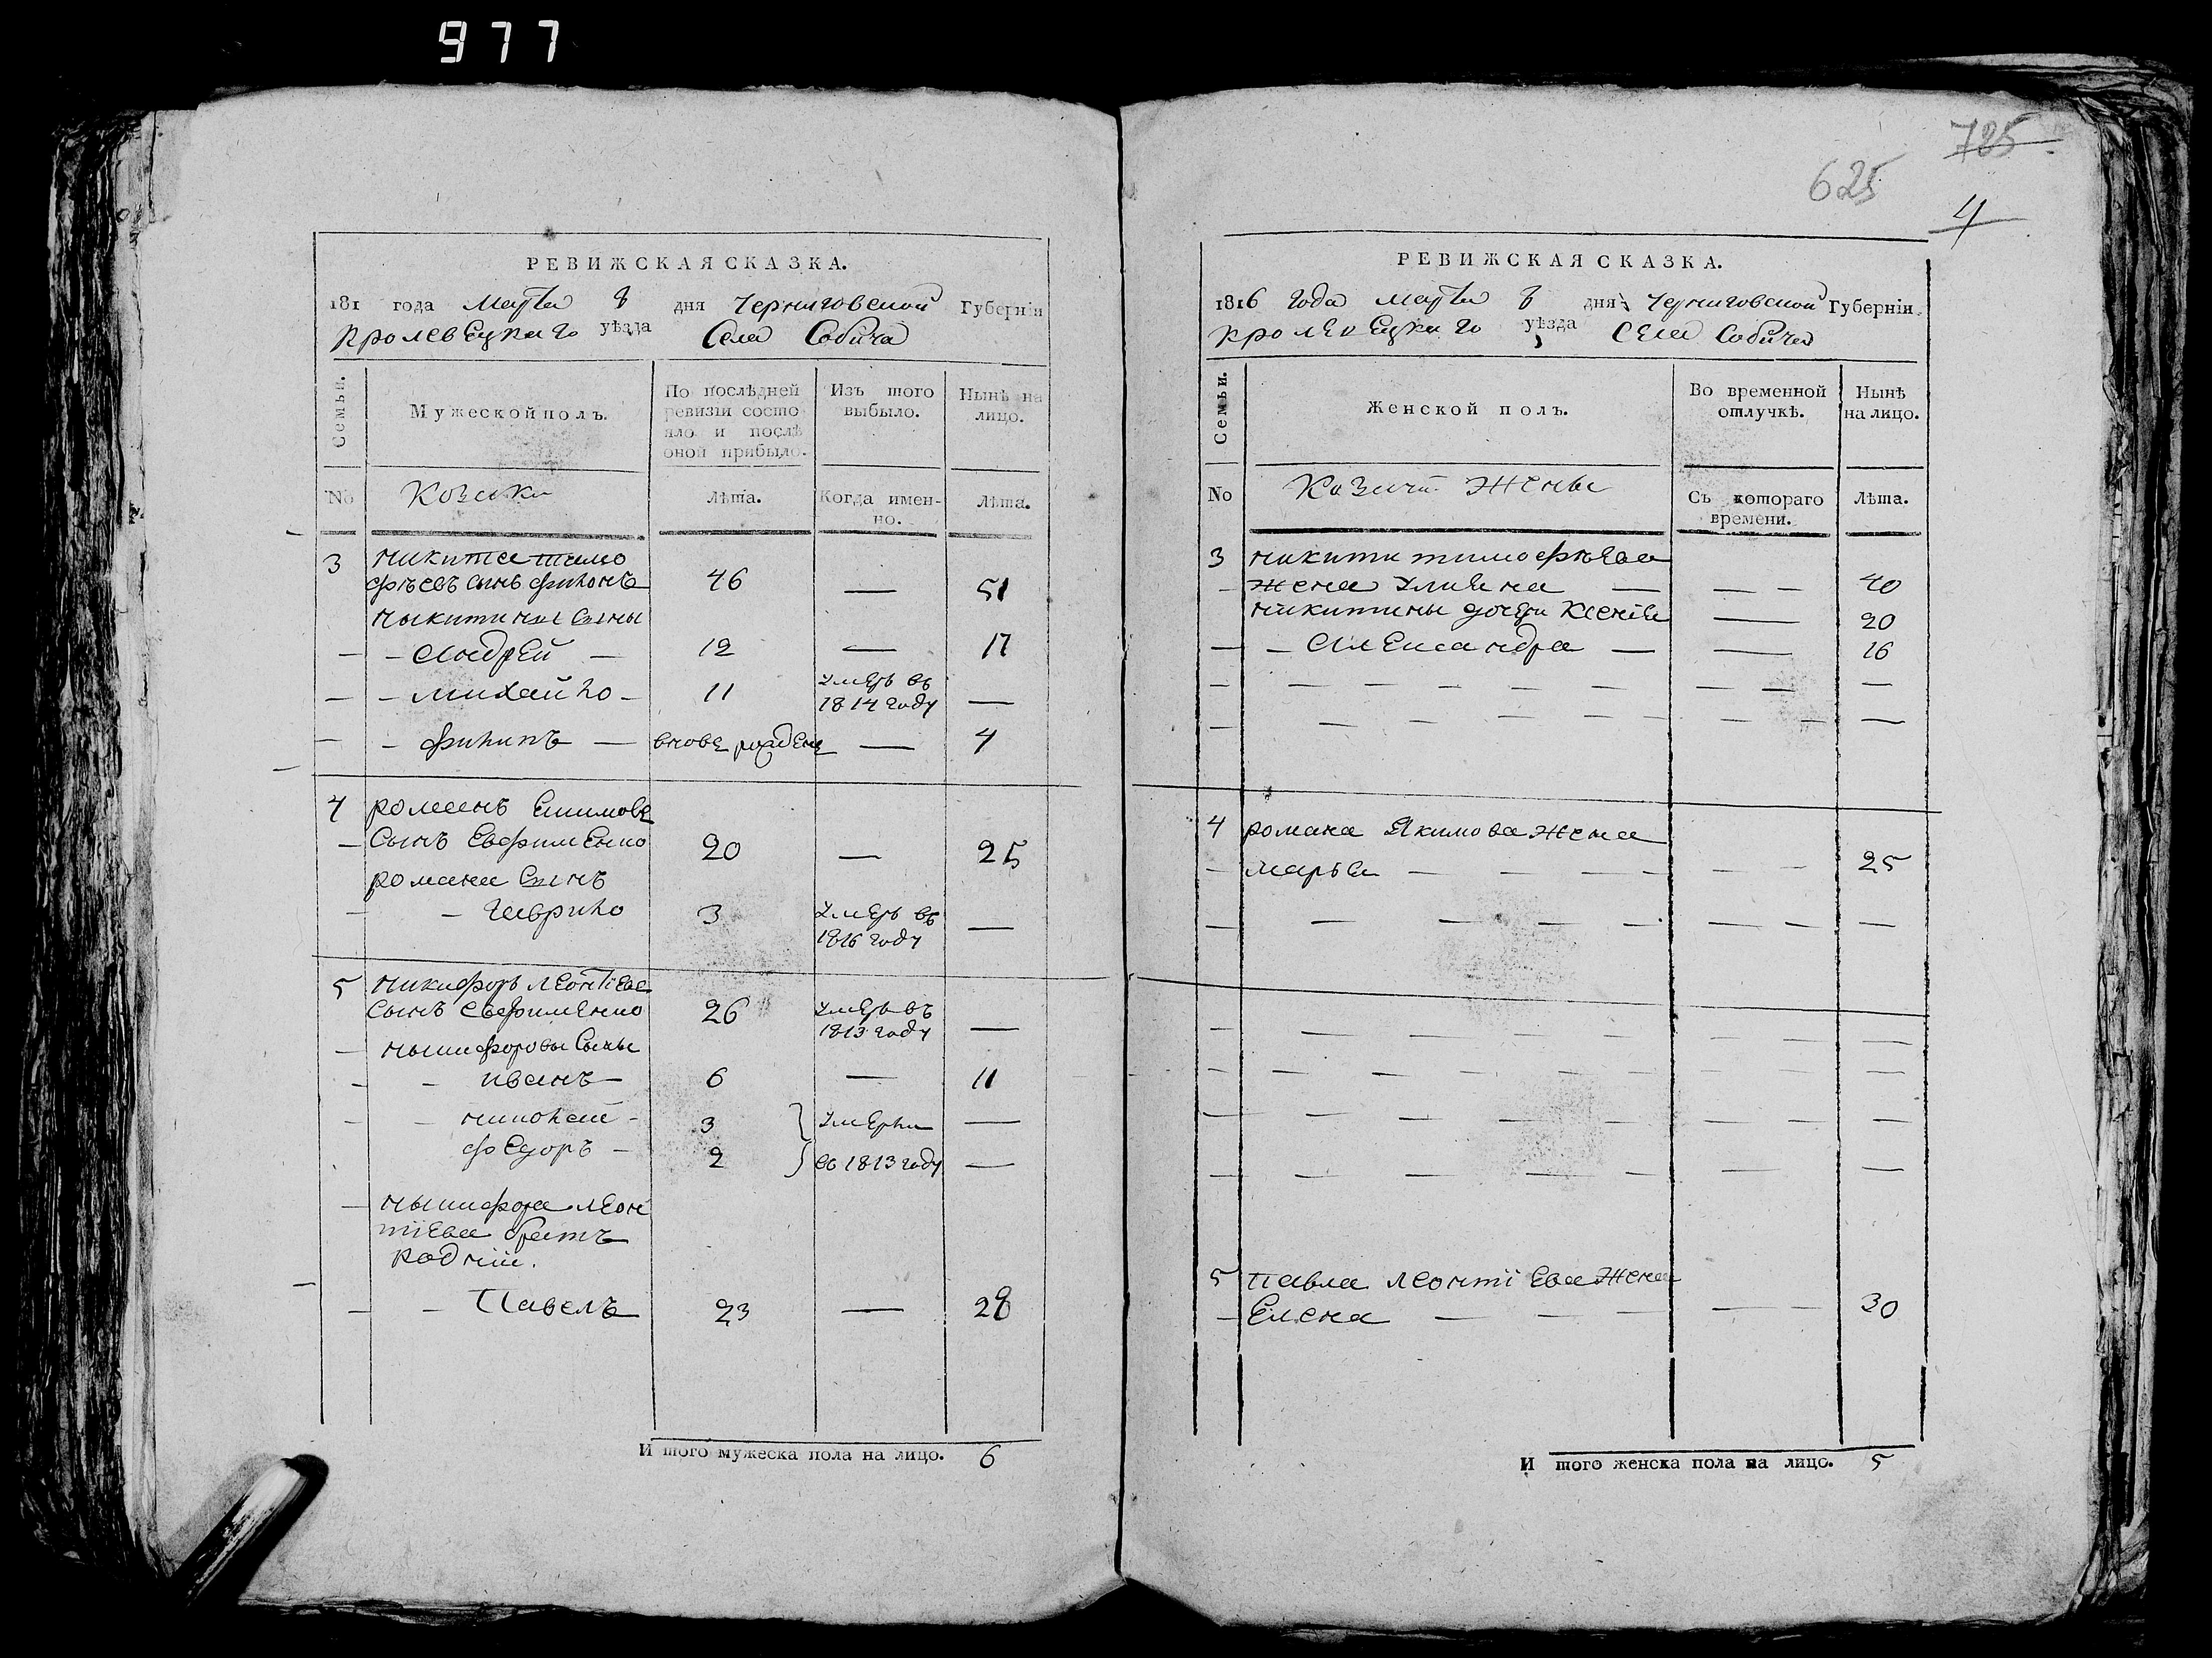 977
РЕВИЖСКАЯ СКАЗКА.
181 года Марта 8 дня Черниговской Губерніи
Кролевецкаго уѣзда Села Собича
Семьи.
Мужеской полъ.
По послѣдней ревизіи состояло и послѣ оной прибыло.
Изъ того выбыло.
Нынѣ на лицо.
No
Козаки
Лѣта.
Когда именно.
Лѣта.
3 никита тимо
фѣевъ сынъ 46 — 51
никитины сыны
— – андрей — 12 — 17
— – михайло – 11 умеръ въ 1814 году —
— – филипъ — вновь рожденъ — 4
4 романъ
— сынъ Евфименко 20 — 25
романа сынъ
— – гаврило 3 умеръ въ 1816 году —
5 никифоръ леонтіевъ
сынъ Евфименко 26 умеръ въ 1813 году —
— никифоровы сыны
– – иванъ — 6 — 11
– – николай – 3 } умерли —
федоръ – 2 } въ 1813 году —
— никифора леон
тіева братъ
родній.
— – Павелъ 23 — 28
И того мужеска пола на лицо. 6
785
625
4
РЕВИЖСКАЯ СКАЗКА.
1816 года марта 8 дня Черниговской Губерніи.
кролевецкаго уѣзда села Собича
Семьи.
Женской полъ.
Во временной отлучкѣ.
Нынѣ на лицо.
No
Козачи Жены
Съ котораго времени.
Лѣта.
3 никити тимофѣева
– жена улияна — — – 40
никитины дочери Ксенія — 20
— – александра — — 16
4 романа Якимова жена
– марья — — — – — – 25
5 Павла леонтіева жена
– Елена — — — — – 30
И того женска пола на лицо. 5